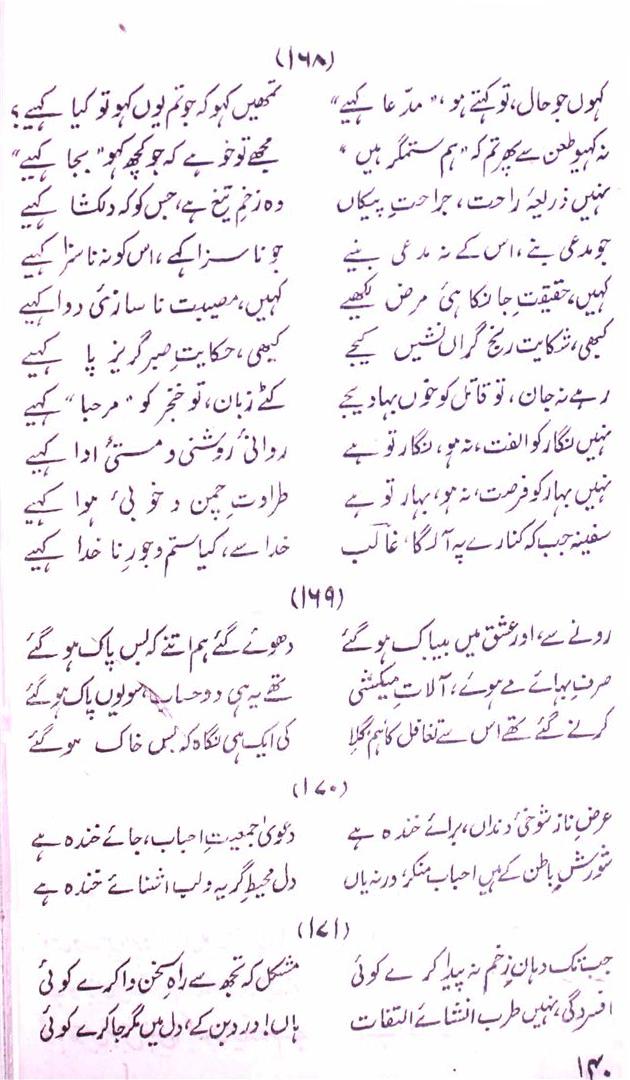 (۱۶۸)
کہوں جو حال، تو کہتے ہو، "مدّعا کہیے" تمھیں کہو کہ جو تم یوں کہو تو کیا کہیے؟
نہ کہیو طعن سے پھر تم کہ "ہم ستمگر ہیں" مجھے تو خو ہے کہ جو کچھ کہو "بجا کہیے"
نہیں ذریعۂ راحت، جراحتِ پیکاں وہ زخمِ تیغ ہے، جس کو کہ دلکشا کہیے
جو مدعی بنے، اس کے نہ مدعی بنیے جو ناسزا کہے، اس کو نہ ناسزا کہیے
کہیں، حقیقتِ جانکاہیٔ مرض لکھیے کہیں، مصیبت ناسازیٔ دوا کہیے
کبھی، شکایتِ رنجِ گراں نشیں کیجے کبھی، حکایتِ صبرِ گریز پا کہیے
رہے نہ جان، تو قاتل کو خوں بہا دیجے کٹے زبان، تو خنجر کو "مرحبا" کہیے
نہیں نگار کو الفت، نہ ہو، نگار تو ہے روانیٔ روشنی و مستیٔ ادا کہیے
نہیں بہار کو فرصت، نہ ہو، بہار تو ہے طراوتِ چمن و خوبیٔ ہوا کہیے
سفینہ جب کہ کنارے پہ آ لگا، غالب خدا سے، کیا ستم و جورِ ناخدا کہیے
(۱۶۹)
رونے سے، اور عشق میں بیباک ہو گئے دھوئے گئے ہم اتنے کہ بس پاک ہو گئے
صرفِ بہائے مے ہوئے، آلاتِ میکشی تھے یہ ہی دو حساب، سو یوں پاک ہو گئے
کرنے گئے تھے اس سے تغافل کا ہم گلا کی ایک ہی نگاہ کہ بس خاک ہو گئے
(۱۷۰)
عرضِ نازِ شوخیٔ دنداں، برائے خندہ ہے دعویٰ جمعیتِ احباب، جائے خندہ ہے
شورشِ باطن کے ہیں احباب منکر، ورنہ یاں دل محیطِ گریہ و لب آشنائے خندہ ہے
(۱۷۱)
جب تک دہانِ زخم نہ پیدا کرے کوئی مشکل کہ تجھ سے راہِ سخن وا کرے کوئی
افسردگی، نہیں طرب انشائے التفات ہاں! درد بن کے، دل میں مگر جا کرے کوئی
۱۴۰